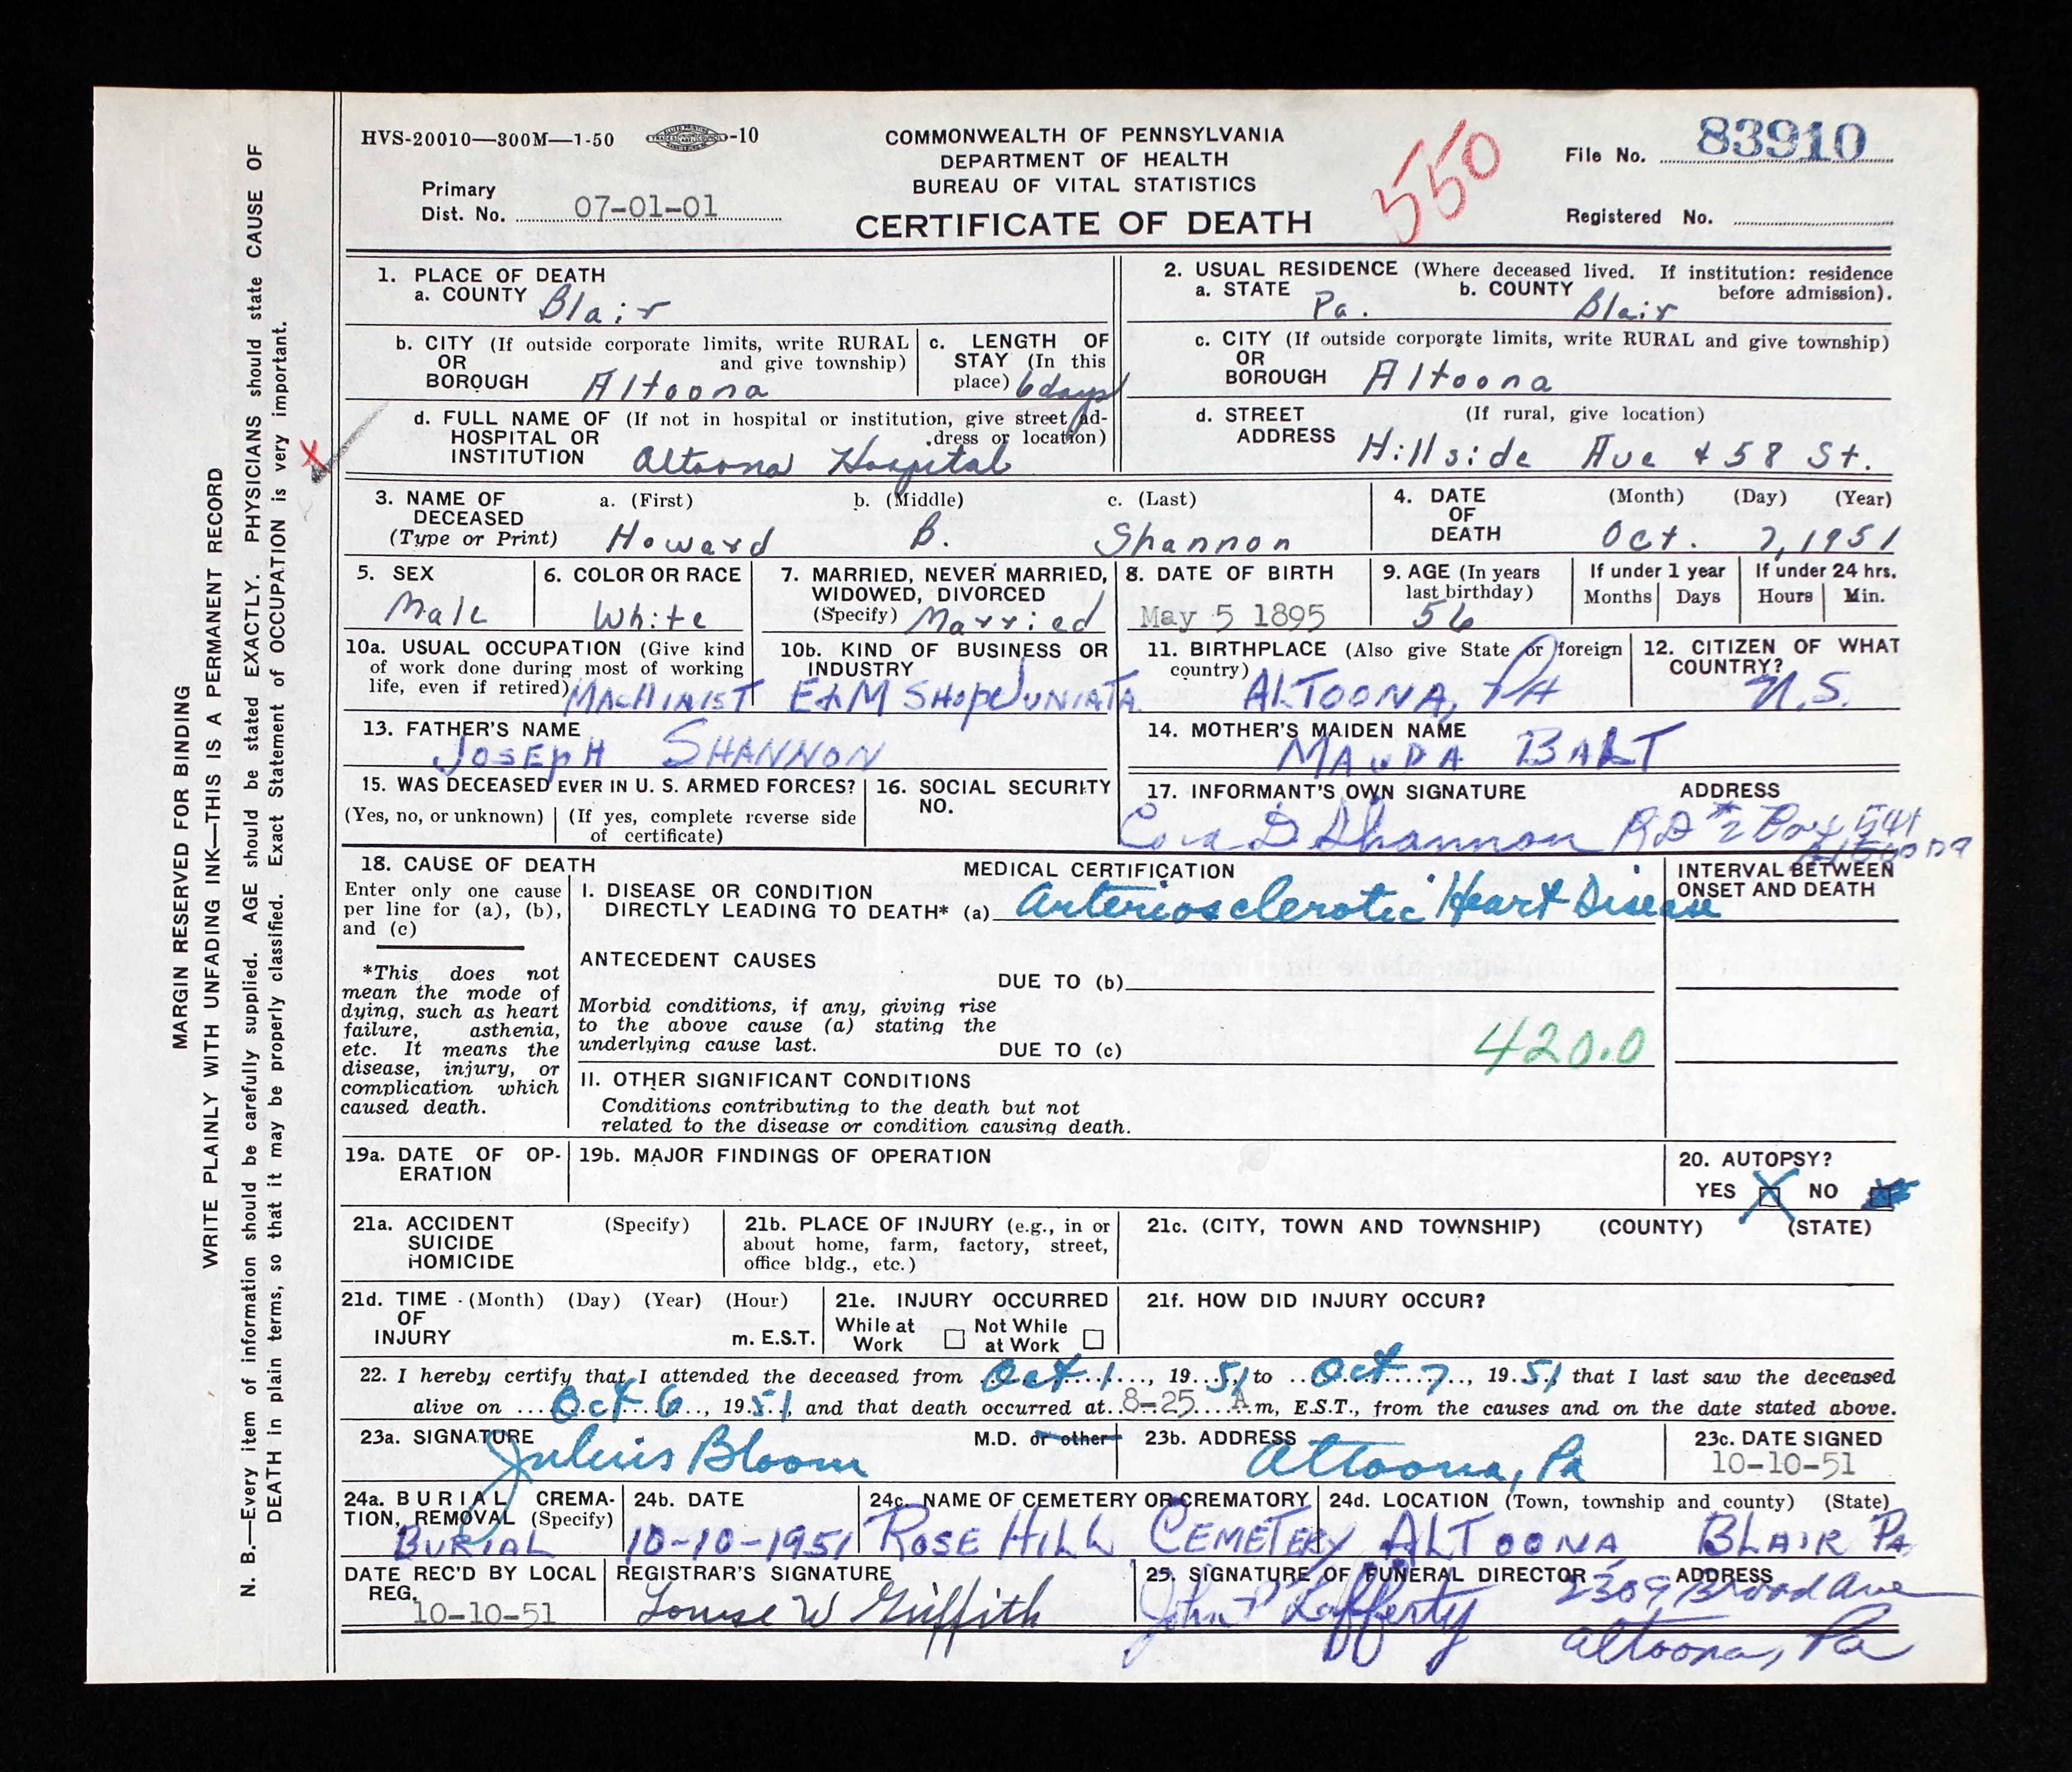 HVS-20010—300M—1-50 -10
COMMONWEALTH OF PENNSYLVANIA
DEPARTMENT OF HEALTH
BUREAU OF VITAL STATISTICS
CERTIFICATE OF DEATH
550
File No. 83910
Primary
Dist. No. 07-01-01
Registered No.
MARGIN RESERVED FOR BINDING
WRITE PLAINLY WITH UNFADING INK—THIS IS A PERMANENT RECORD
N. B.—Every item of information should be carefully supplied. AGE should be stated EXACTLY. PHYSICIANS should state CAUSE OF
DEATH in plain terms, so that it may be properly classified. Exact Statement of OCCUPATION is very important.
1. PLACE OF DEATH
a. COUNTY Blair
2. USUAL RESIDENCE (Where deceased lived. If institution: residence
before admission).
a. STATE Pa. b. COUNTY Blair
b. CITY (If outside corporate limits, write RURAL
OR and give township)
BOROUGH Altoona
c. LENGTH OF
STAY (In this
place) 6 days
c. CITY (If outside corporate limits, write RURAL and give township)
OR
BOROUGH Altoona
d. FULL NAME OF (If not in hospital or institution, give street ad-
HOSPITAL OR dress or location)
INSTITUTION Altoona Hospital
d. STREET (If rural, give location)
ADDRESS Hillside Ave + 58 St.
3. NAME OF
DECEASED
(Type or Print)
a. (First) b. (Middle) c. (Last)
Howard B. Shannon
4. DATE
OF
DEATH
(Month) (Day) (Year)
Oct. 7, 1951
5. SEX
Male
6. COLOR OR RACE
White
7. MARRIED, NEVER MARRIED,
WIDOWED, DIVORCED
(Specify) Married
8. DATE OF BIRTH
May 5 1895
9. AGE (In years
last birthday)
56
If under 1 year
Months Days
If under 24 hrs.
Hours Min.
10a. USUAL OCCUPATION (Give kind
of work done during most of working
life, even if retired) MACHINIST
10b. KIND OF BUSINESS OR
INDUSTRY
E&M SHOP JUNIATA
11. BIRTHPLACE (Also give State or foreign
country)
ALTOONA, PA
12. CITIZEN OF WHAT
COUNTRY?
U.S.
13. FATHER'S NAME
JOSEPH SHANNON
14. MOTHER'S MAIDEN NAME
MAUDA BALT
15. WAS DECEASED EVER IN U. S. ARMED FORCES?
(Yes, no, or unknown) (If yes, complete reverse side
of certificate)
16. SOCIAL SECURITY
NO.
17. INFORMANT'S OWN SIGNATURE ADDRESS
Cora D Shannon RD #2 Box 541
Altoona
18. CAUSE OF DEATH
Enter only one cause
per line for (a), (b),
and (c)
*This does not
mean the mode of
dying, such as heart
failure, asthenia,
etc. It means the
disease, injury, or
complication which
caused death.
MEDICAL CERTIFICATION
I. DISEASE OR CONDITION
DIRECTLY LEADING TO DEATH* (a) Arteriosclerotic Heart Disease
ANTECEDENT CAUSES
DUE TO (b)
Morbid conditions, if any, giving rise
to the above cause (a) stating the
underlying cause last.
DUE TO (c)
420.0
II. OTHER SIGNIFICANT CONDITIONS
Conditions contributing to the death but not
related to the disease or condition causing death.
INTERVAL BETWEEN
ONSET AND DEATH
19a. DATE OF OP-
ERATION
19b. MAJOR FINDINGS OF OPERATION
20. AUTOPSY?
YES X NO
21a. ACCIDENT (Specify)
SUICIDE
HOMICIDE
21b. PLACE OF INJURY (e.g., in or
about home, farm, factory, street,
office bldg., etc.)
21c. (CITY, TOWN AND TOWNSHIP) (COUNTY) (STATE)
21d. TIME (Month) (Day) (Year) (Hour)
OF
INJURY m. E.S.T.
21e. INJURY OCCURRED
While at Not While
Work at Work
21f. HOW DID INJURY OCCUR?
22. I hereby certify that I attended the deceased from Oct 1, 1951, to Oct 7, 1951, that I last saw the deceased
alive on Oct 6, 1951, and that death occurred at 8-25 A m, E.S.T., from the causes and on the date stated above.
23a. SIGNATURE M.D. or other
Julius Bloom
23b. ADDRESS
Altoona, Pa
23c. DATE SIGNED
10-10-51
24a. BURIAL CREMA-
TION, REMOVAL (Specify)
BURIAL
24b. DATE
10-10-1951
24c. NAME OF CEMETERY OR CREMATORY
ROSE HILL CEMETERY
24d. LOCATION (Town, township and county) (State)
ALTOONA BLAIR PA
DATE REC'D BY LOCAL
REG.
10-10-51
REGISTRAR'S SIGNATURE
Louise W Griffith
25. SIGNATURE OF FUNERAL DIRECTOR ADDRESS
John P Lafferty 2309 Broad Ave
Altoona, Pa